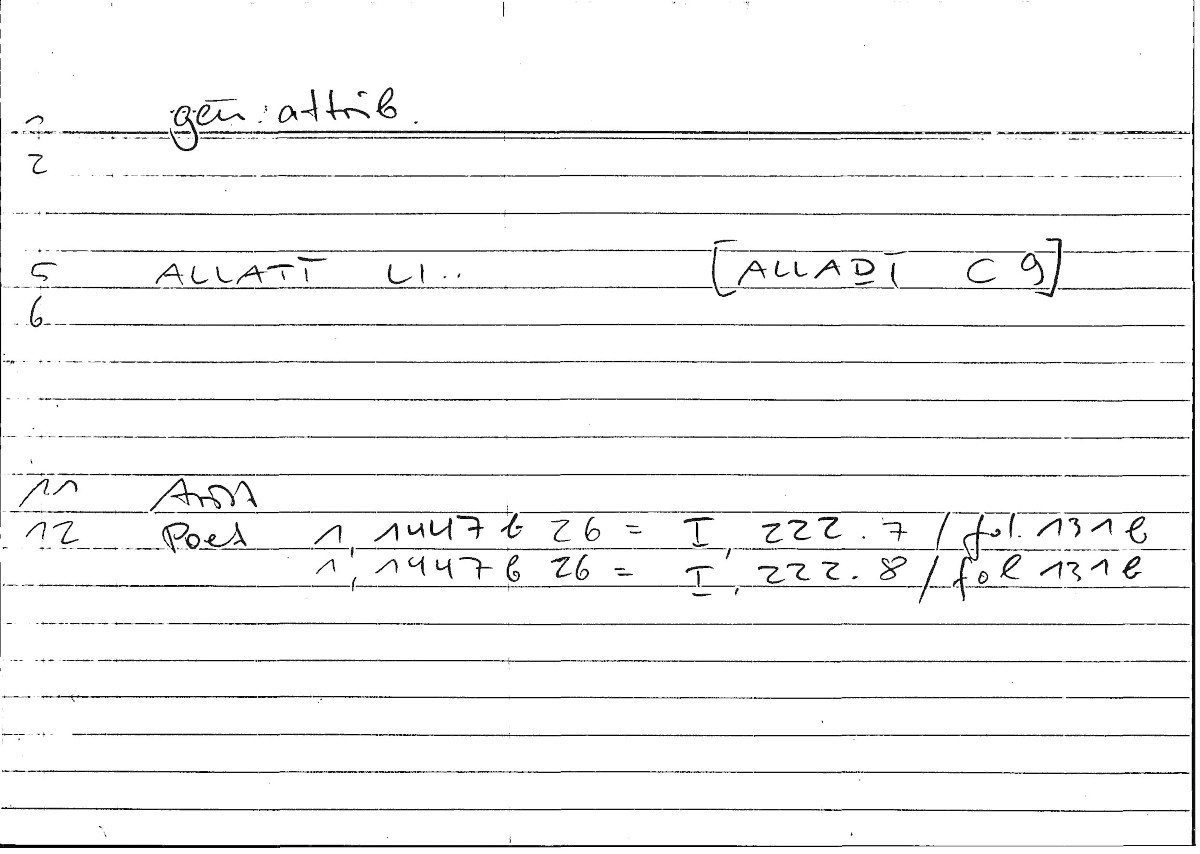 1 gen. attrib.
2
5 ALLATĪ LI.. [ALLAḎĪ C 9]
6
11 Arist
12 Poet 1, 1447 b 26 = I, 222.7 / fol. 131 b
1, 1447 b 26 = I, 222.8 / fol 131 b